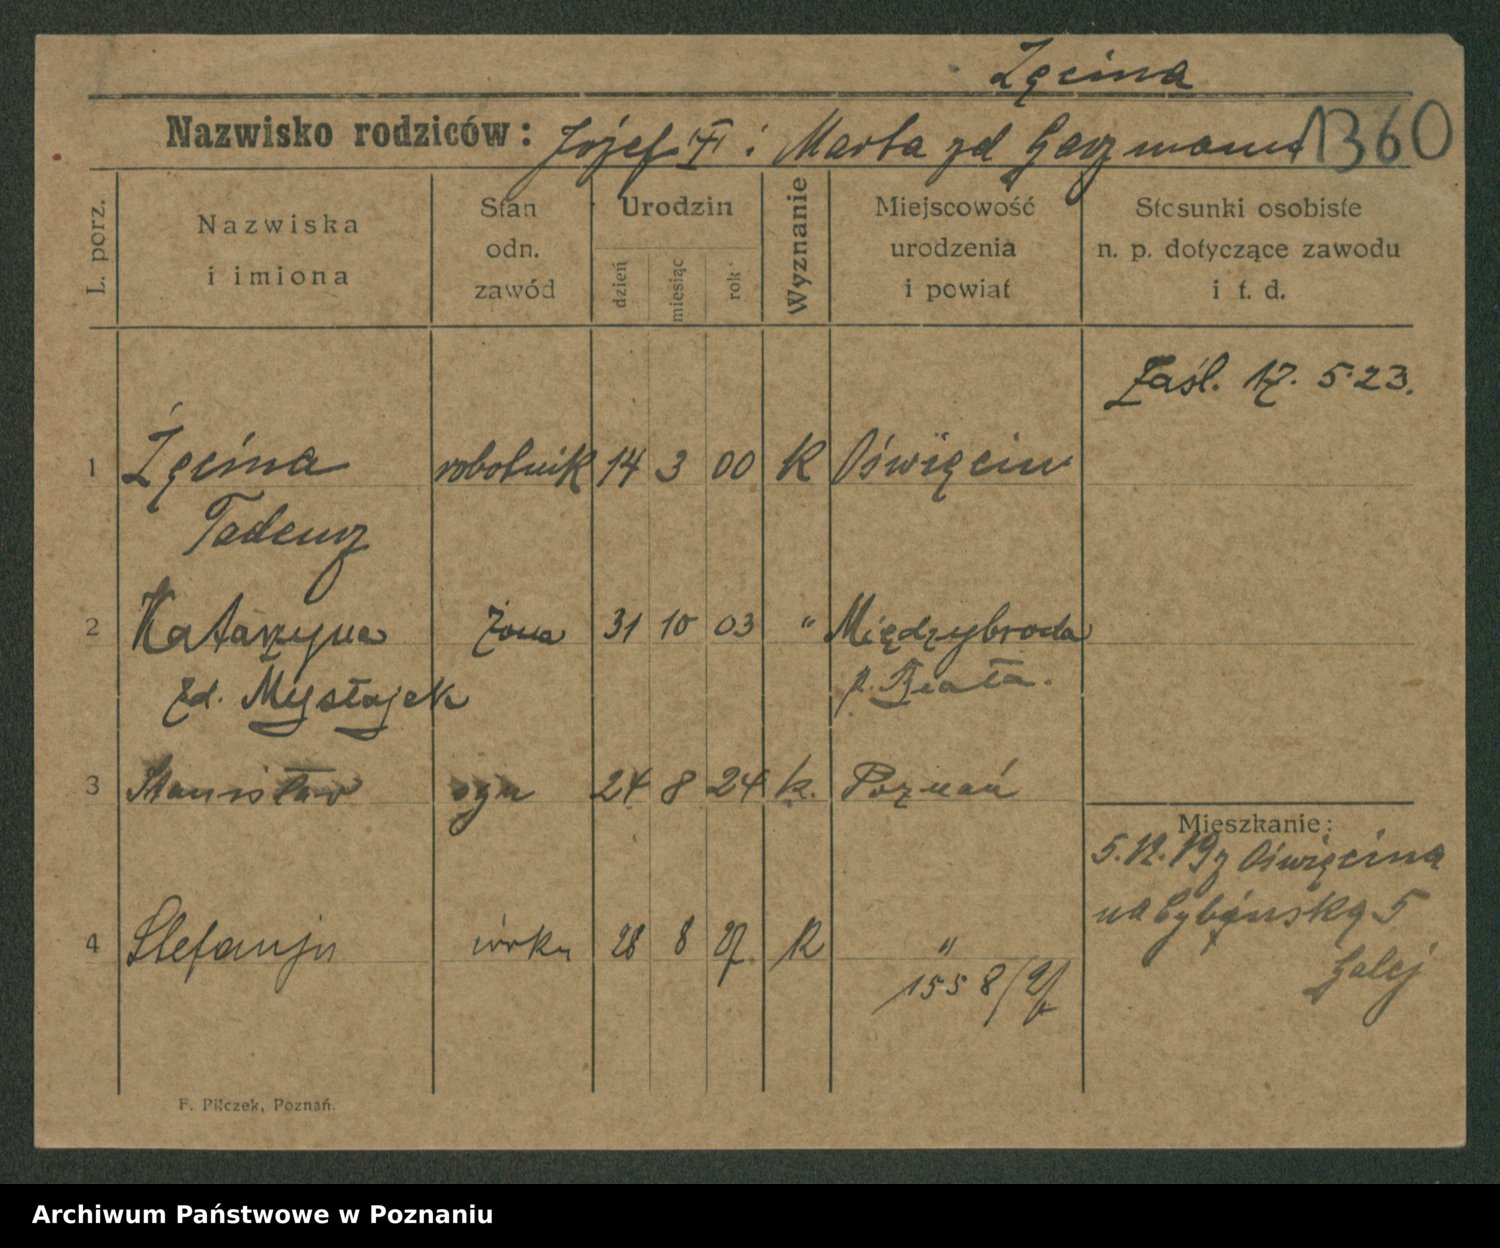 Zęcina
Nazwisko rodziców: Józef i Marta zd 1360
L. porz.
Nazwiska
i imiona
Stan
odn.
zawód
Urodzin
dzień
miesiąc
rok
Wyznanie
Miejscowość
urodzenia
i powiat
Stosunki osobiste
n. p. dotyczące zawodu
i t. d.
Zaśl. 12. 5.23.
1 Żęcina robotnik 14 3 00 K Oświęcim
Tadeusz
2 Katarzyna żona 31 10 03 " Międzybroda
zd. Mysłajek p. Biała.
3 Stanisław syn 24 8 24 k. Poznań
Mieszkanie:
5.12.19 z Oświęcima
na Cybińską 5
Galej
4 Stefanja córka 28 8 27 K "
1558/27
F. Pilczek, Poznań.
Archiwum Państwowe w Poznaniu